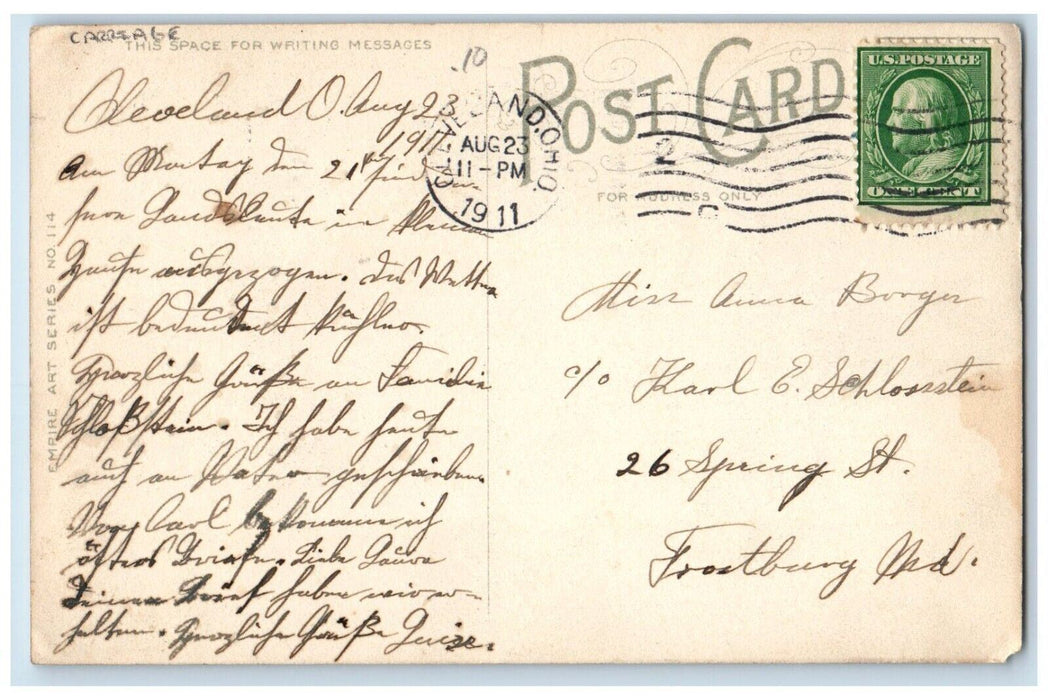 CARRIAGE
THIS SPACE FOR WRITING MESSAGES
.10
POST CARD
FOR ADDRESS ONLY
U.S. POSTAGE
ONE CENT
CLEVELAND, OHIO.
AUG 23
11-PM
1911
EMPIRE ART SERIES NO. 114
Cleveland O. Aug 23
1911
Am Montag den 21t sind
Landsleute in
Hause ausgezogen. Das Wetter
ist bedeutent kühler.
Herzliche Grüße an Familie
Schloßstein. Ich habe heute
auch an Vater geschrieben.
Von Carl bekomme ich
öfters Briefe. Liebe
Deinen Brief haben wir er-
halten. Herzliche Grüße
Miss Anna Borger
c/o Karl E. Schlossstein
26 Spring St.
Frostburg Md.